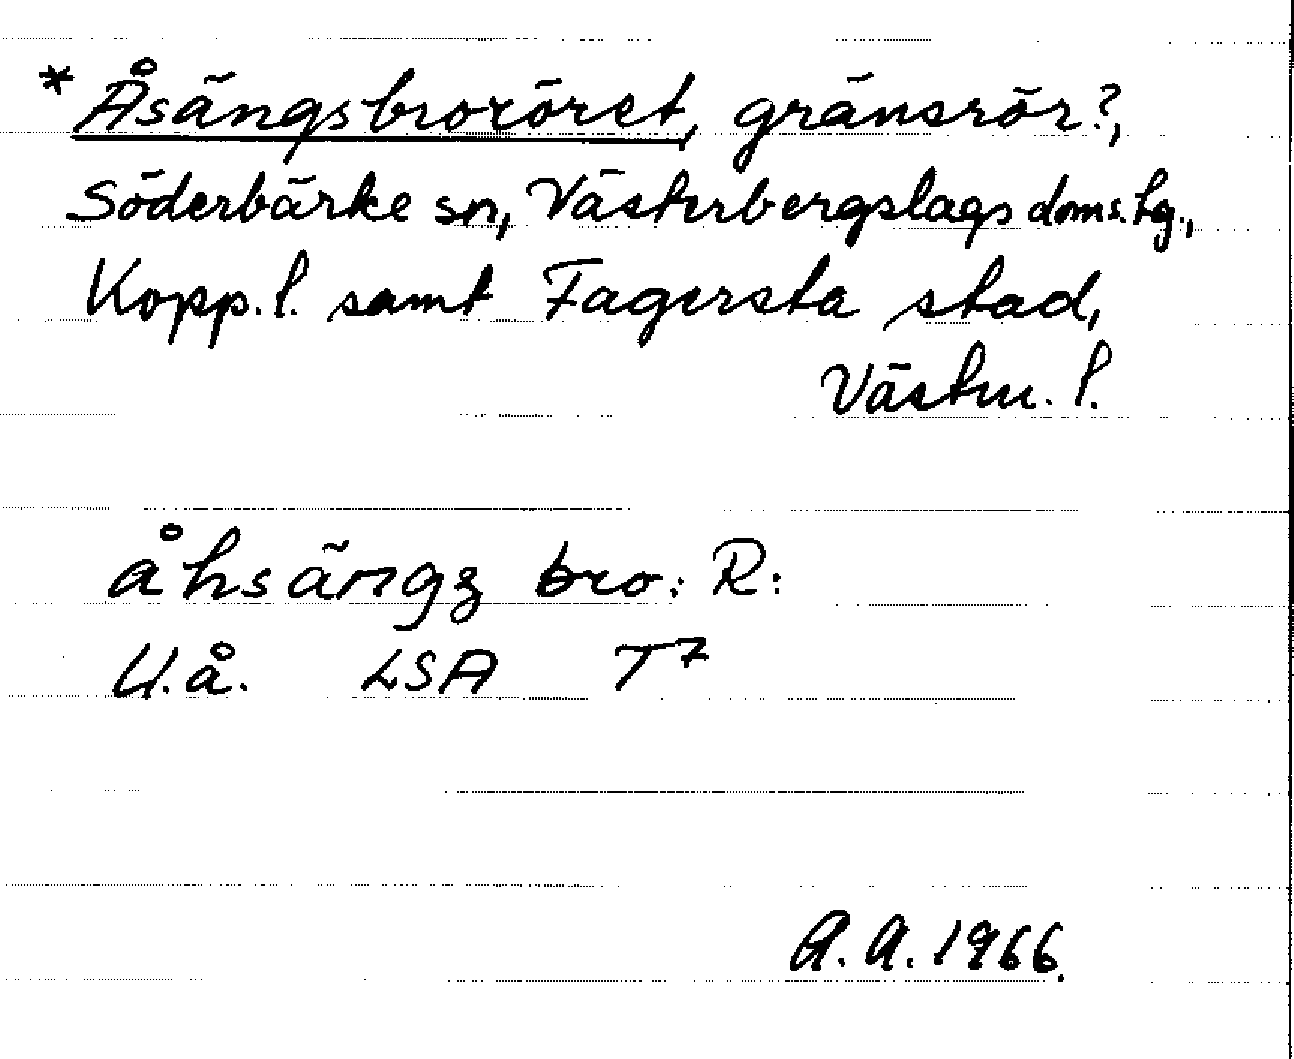 * Åsängsbroröret, gränsrör?,
Söderbärke sn, Västerbergslags doms.tg.,
Kopp. l. samt Fagersta stad,
Västm. l.
åhsängz bro: R:
U.å. LSA T7
A.A. 1966.